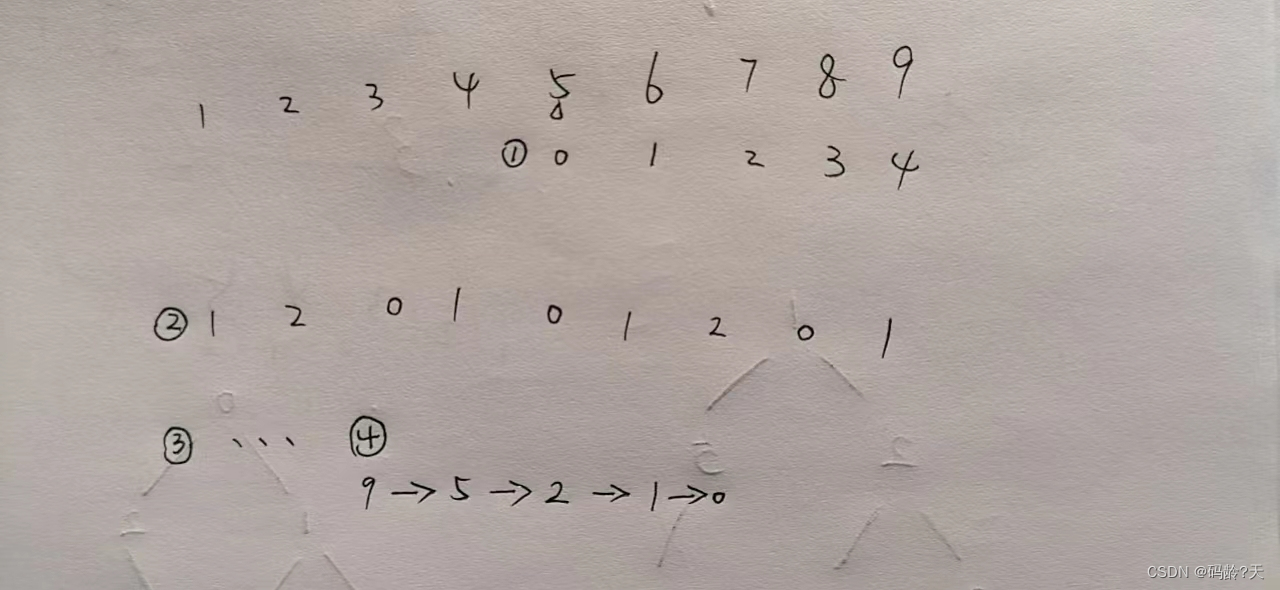 1 2 3 4 5 6 7 8 9
① 0 1 2 3 4
② 1 2 0 1 0 1 2 0 1
③ ... ④
9 → 5 → 2 → 1 → 0
CSDN @码龄?天